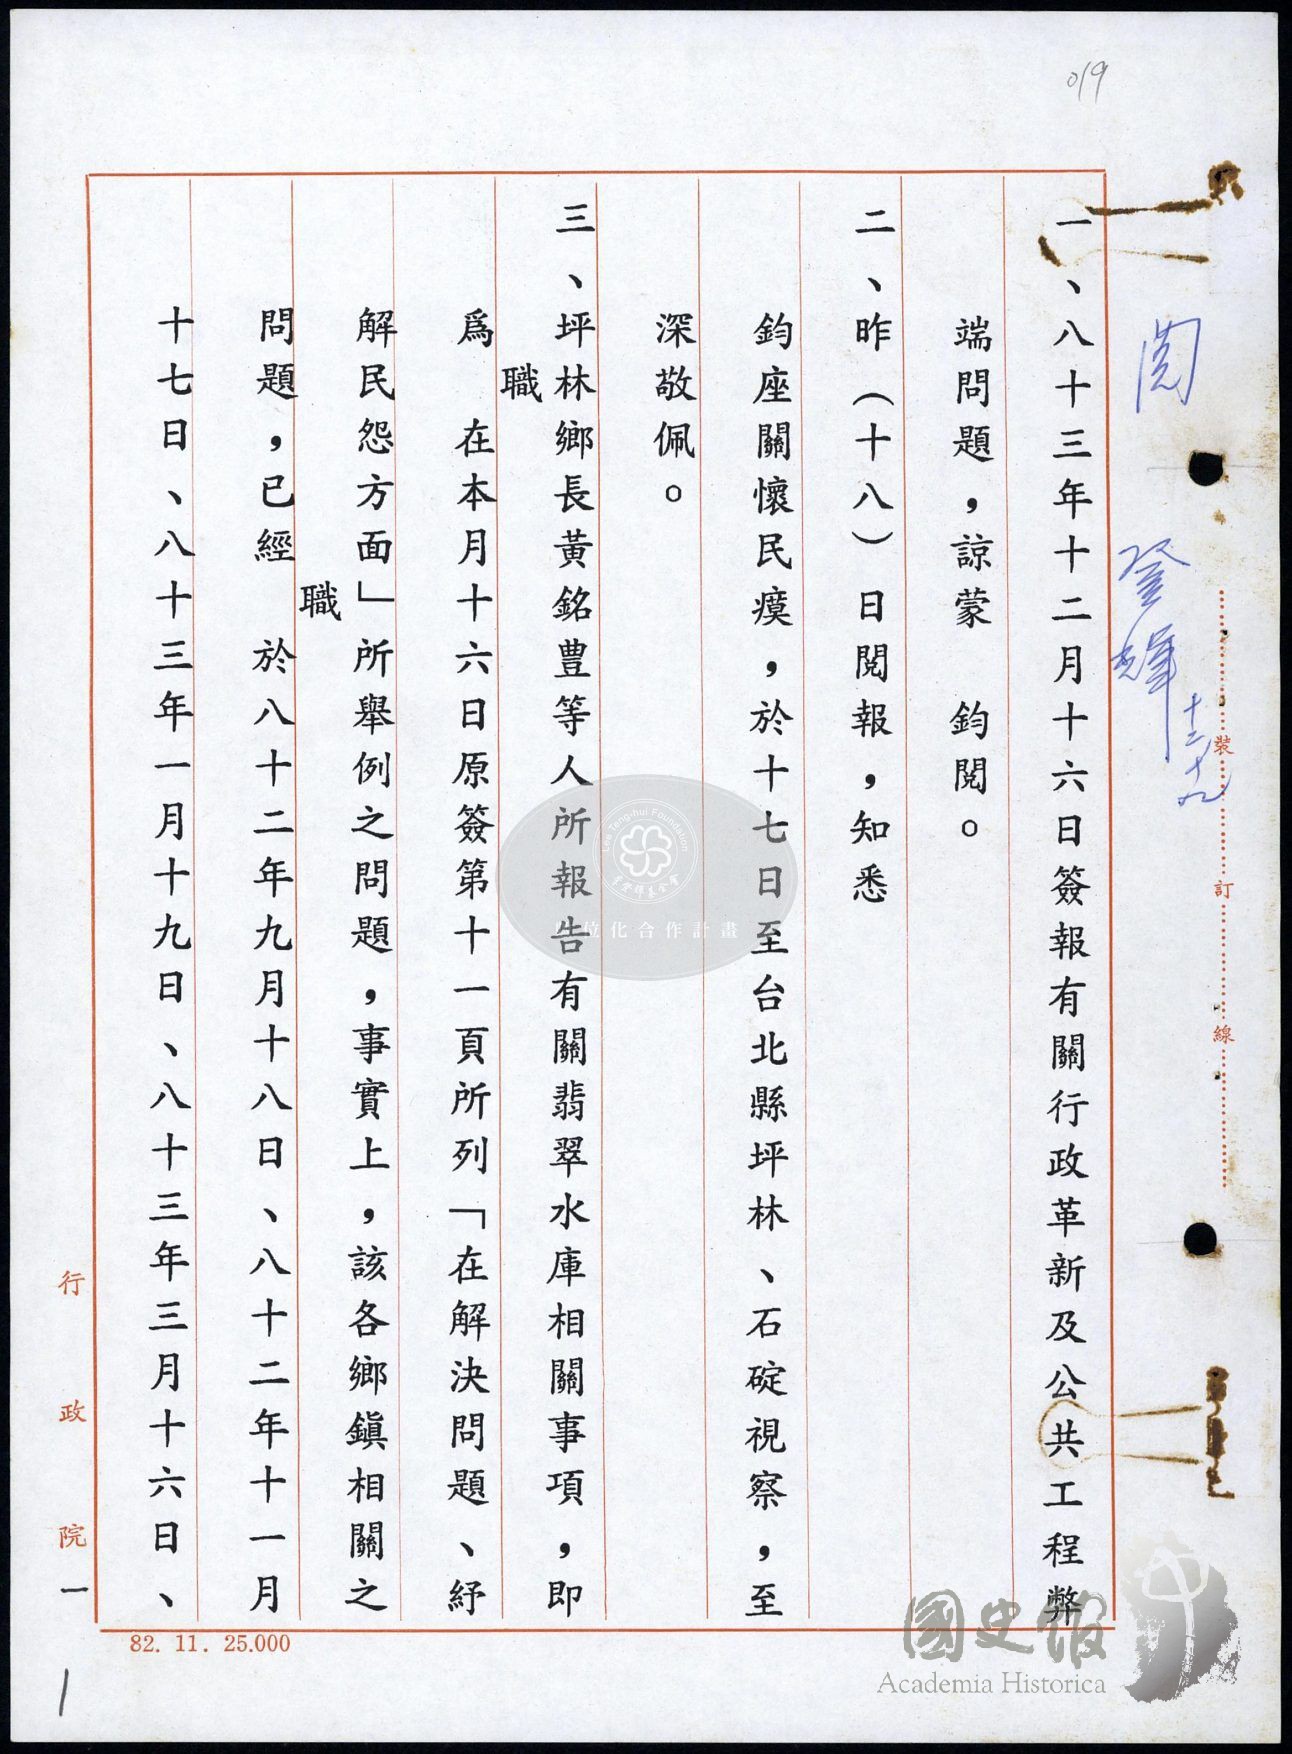 019
閱
登輝
十二、十九
裝
訂
線
一、八十三年十二月十六日簽報有關行政革新及公共工程弊
端問題，諒蒙　鈞閱。
二、昨（十八）日閱報，知悉
鈞座關懷民瘼，於十七日至台北縣坪林、石碇視察，至
深敬佩。
三、坪林鄉長黃銘豊等人所報告有關翡翠水庫相關事項，即
為職在本月十六日原簽第十一頁所列「在解決問題、紓
解民怨方面」所舉例之問題，事實上，該各鄉鎮相關之
問題，已經職於八十二年九月十八日、八十二年十一月
十七日、八十三年一月十九日、八十三年三月十六日、
行政院
一
82. 11. 25.000
1
Lee Teng-hui Foundation
李登輝基金會
位化合作計畫
國史館
Academia Historica